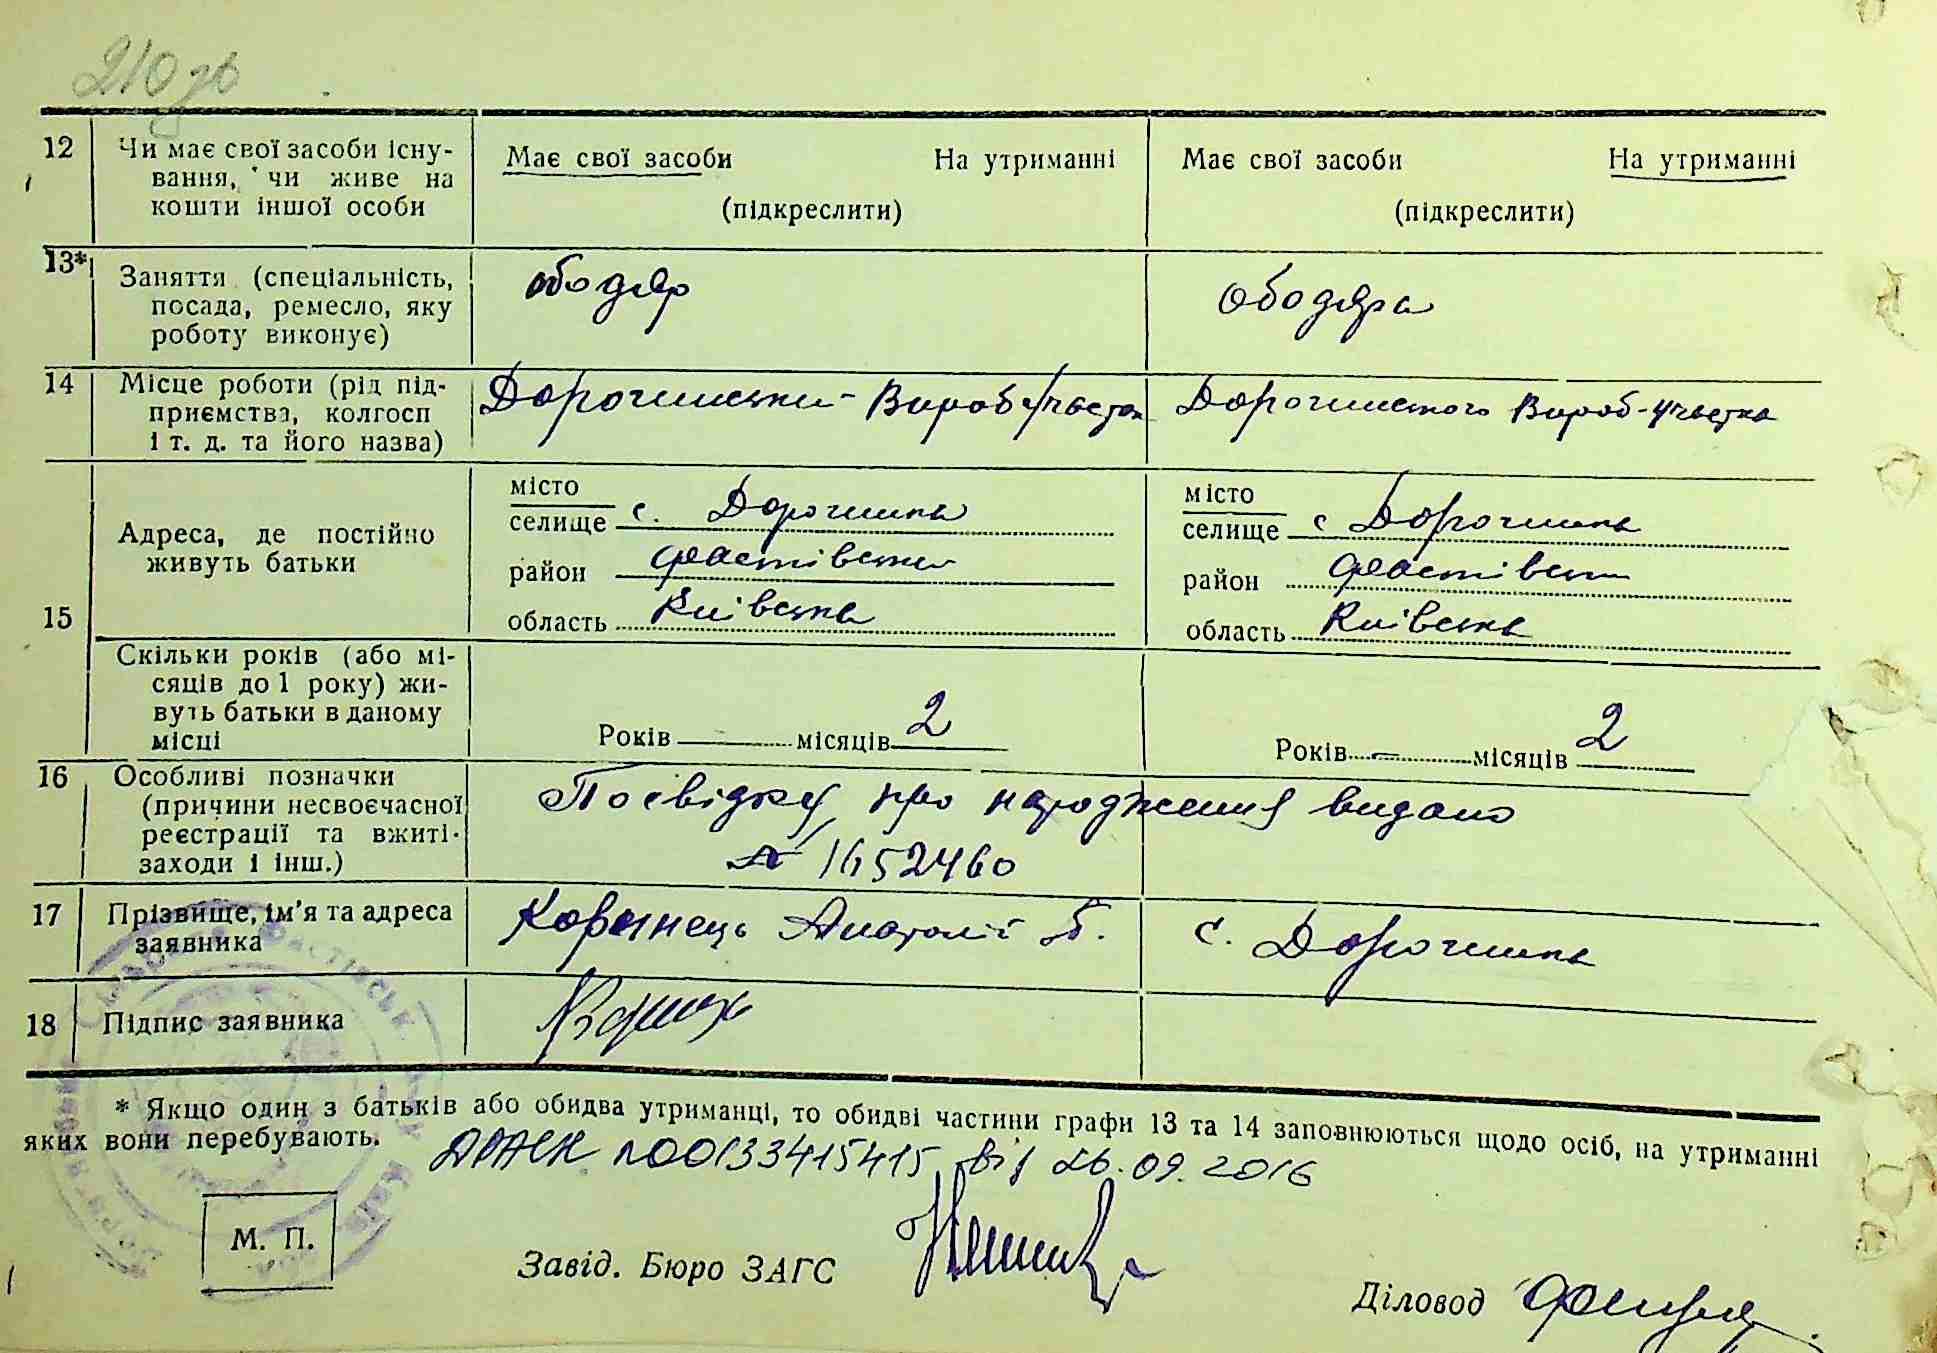 210 зв
12 Чи має свої засоби існу-
вання, чи живе на
кошти іншої особи
Має свої засоби На утриманні
(підкреслити)
Має свої засоби На утриманні
(підкреслити)
13* Заняття (спеціальність,
посада, ремесло, яку
роботу виконує)
ободяр
ободяра
14 Місце роботи (рід під-
приємства, колгосп
і т. д. та його назва)
Дорогинський Вироб участок
Дорогинського Вироб-участка
15 Адреса, де постійно
живуть батьки
місто
селище с. Дорогинка
район Фастівський
область Київська
місто
селище с Дорогинка
район Фастівський
область Київська
Скільки років (або мі-
сяців до 1 року) жи-
вуть батьки в даному
місці
Років місяців 2
Років місяців 2
16 Особливі позначки
(причини несвоєчасної
реєстрації та вжиті
заходи і інш.)
Посвідку про народження видано
№ 1652460
17 Прізвище, ім'я та адреса
заявника
Анатолій
с. Дорогинка
18 Підпис заявника
* Якщо один з батьків або обидва утриманці, то обидві частини графи 13 та 14 заповнюються щодо осіб, на утриманні
яких вони перебувають.
ДРАЦС №00133415415 від 26.09.2016
М. П.
Завід. Бюро ЗАГС
Діловод